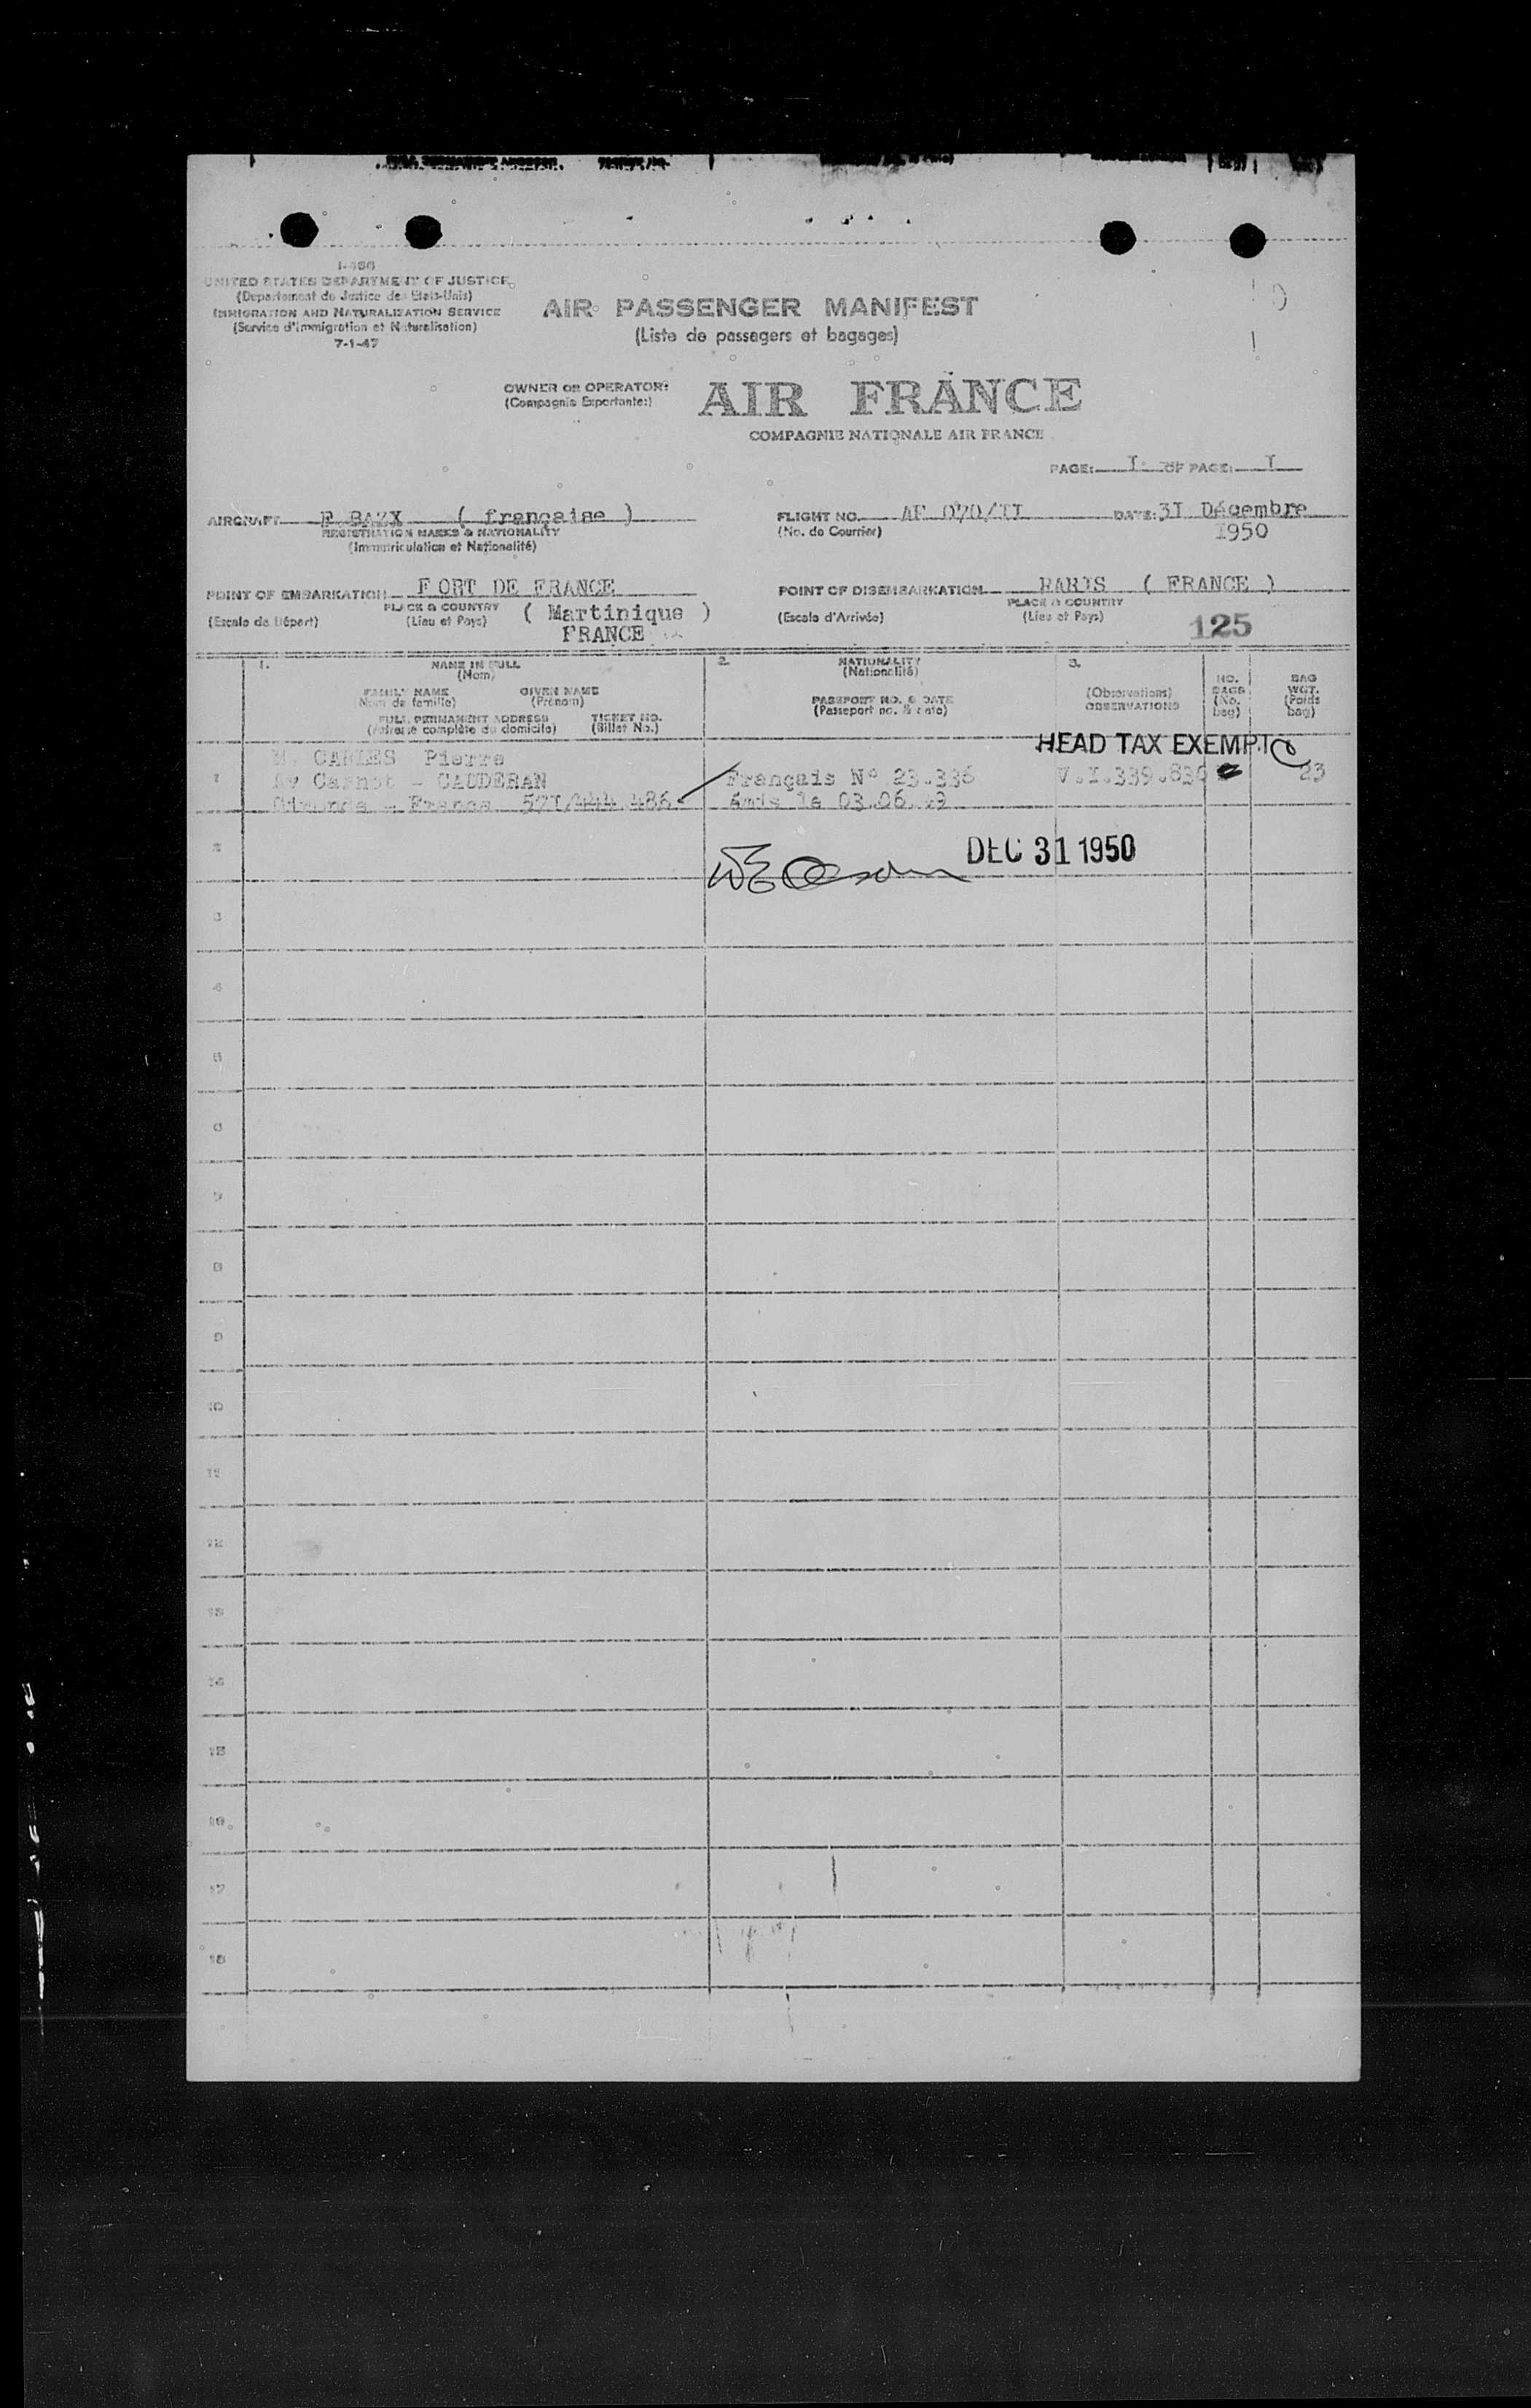 I-466
UNITED STATES DEPARTMENT OF JUSTICE
(Departement de Justice des Etats-Unis)
IMMIGRATION AND NATURALIZATION SERVICE
(Service d'Immigration et Naturalisation)
7-1-47
AIR PASSENGER MANIFEST
(Liste de passagers et bagages)
OWNER OR OPERATOR:
(Compagnie Exportante:)
AIR FRANCE
COMPAGNIE NATIONALE AIR FRANCE
PAGE: I OF PAGE: I
AIRCRAFT F BAZX ( française )
REGISTRATION MARKS & NATIONALITY
(Immatriculation et Nationalité)
FLIGHT NO. AF 070/II DATE: 3I Décembre
(No. de Courrier) 1950
POINT OF EMBARKATION FORT DE FRANCE
PLACE & COUNTRY ( Martinique )
(Escale de Départ) (Lieu et Pays) FRANCE
POINT OF DISEMBARKATION PARIS ( FRANCE )
PLACE & COUNTRY
(Escale d'Arrivée) (Lieu et Pays) 125
1. NAME IN FULL
(Nom)
FAMILY NAME GIVEN NAME
Nom de famille) (Prénom)
FULL PERMANENT ADDRESS TICKET NO.
(Adresse complète du domicile) (Billet No.)
2. NATIONALITY
(Nationalité)
PASSPORT NO. & DATE
(Passeport no. & date)
3.
(Observations)
OBSERVATIONS
NO. BAGS (No. bag)
BAG WGT. (Poids bag)
HEAD TAX EXEMPT
M. CARLES Pierre
1 Av Carnot - CAUDERAN Français N° 23.336 V.I.339.830 23
Gironde - France 57I/444.486 émis le 03.06.49
DEC 31 1950
2
3
4
5
6
7
8
9
10
11
12
13
14
15
16
17
18